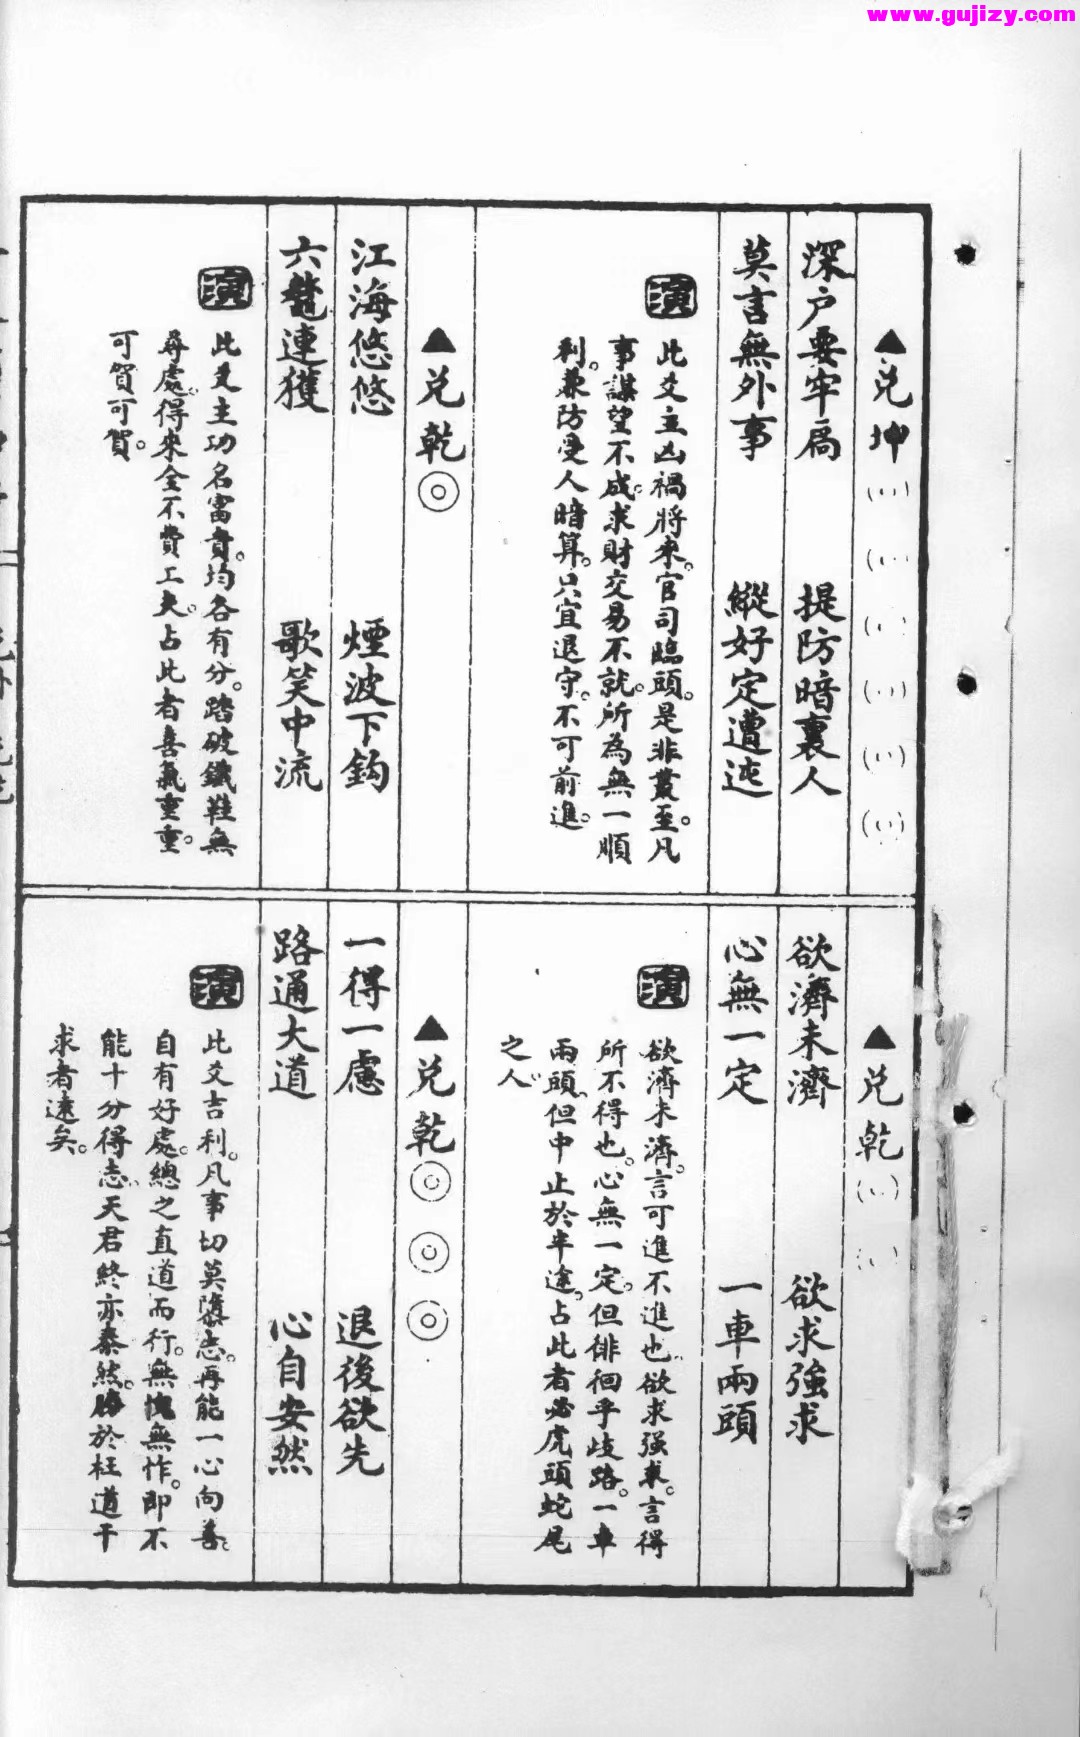 www.gujizy.com
▲兑坤
深户要牢扃 提防暗裏人
莫言無外事 縱好定遭迍
演
此爻主凶禍將來。官司臨頭。是非叢至。凡
事謀望不成。求財交易不就。所為無一順
利。兼防受人暗算。只宜退守。不可前進。
▲兑乾◎
江海悠悠 煙波下鈎
六鼇連獲 歌笑中流
演
此爻主功名富貴。均各有分。踏破鐵鞋無
尋處。得來全不費工夫。占此者喜氣重重。
可賀可賀。
▲兑乾
欲濟未濟 欲求強求
心無一定 一車兩頭
演
欲濟未濟。言可進不進也。欲求强求。言得
所不得也。心無一定。但徘徊乎歧路。一車
兩頭。但中止於半途。占此者必虎頭蛇尾
之人。
▲兑乾◎◎◎
一得一慮 退後欲先
路通大道 心自安然
演
此爻吉利。凡事切莫隳志。再能一心向善。
自有好處。總之直道而行。無愧無怍。即不
能十分得志。天君終亦泰然。勝於枉道干
求者遠矣。